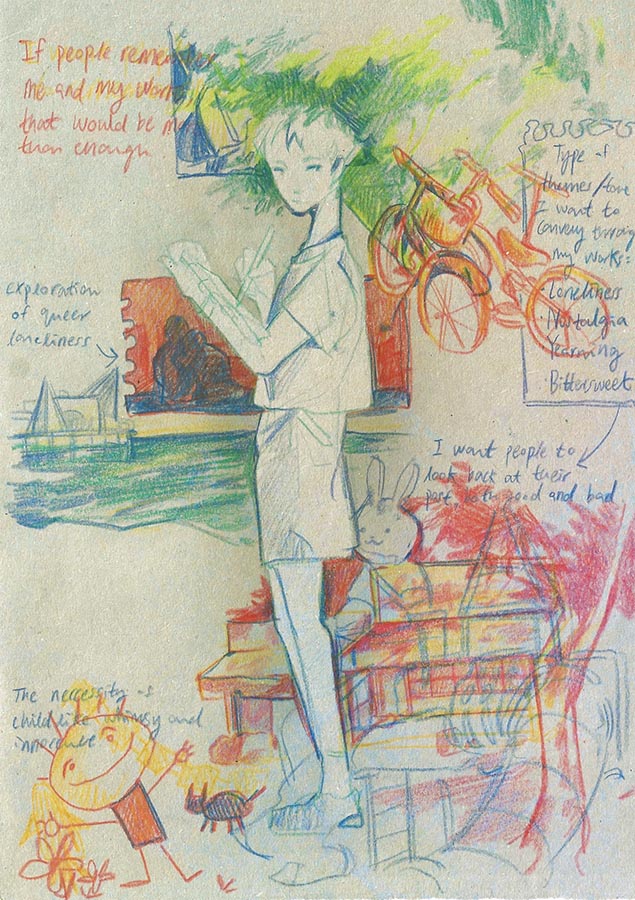 If people remember
me and my works
that would be more
than enough
Type of
themes/tone
I want to
convey through
my works:
· Loneliness
· Nostalgia
Yearning
· Bittersweet
exploration
of queer
loneliness
I want people to
look back at their
past, both good and bad
The neccessity of
childlike whimsy and
innocence